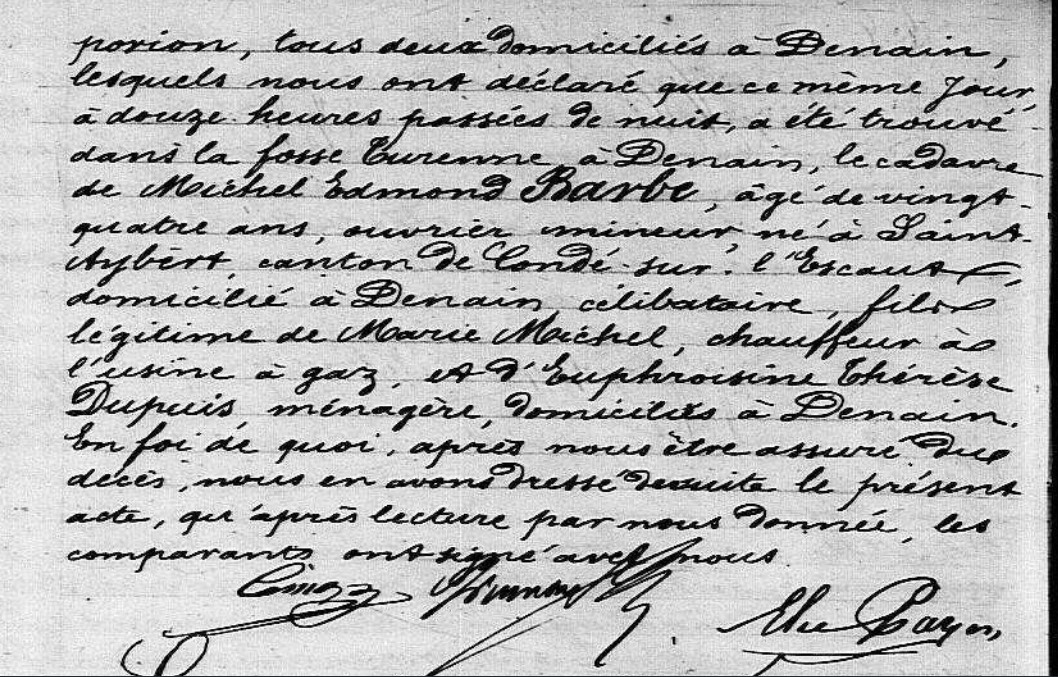 porion, tous deux domiciliés à Denain,
lesquels nous ont déclaré que ce même jour,
à douze heures passées de nuit, a été trouvé
dans la fosse Turenne, à Denain, le cadavre
de Michel Edmond Barbe, âgé de vingt-
quatre ans, ouvrier mineur, né à Saint-
Aybert, canton de Condé-sur-l'Escaut,
domicilié à Denain, célibataire, fils
légitime de Marie Michel, chauffeur à
l'usine à gaz, et d'Euphroisine Thérèse
Dupuis, ménagère, domiciliés à Denain.
En foi de quoi, après nous être assuré du
décès, nous en avons dressé de suite le présent
acte, qu'après lecture par nous donnée, les
comparants ont signé avec nous.
Elie Payen